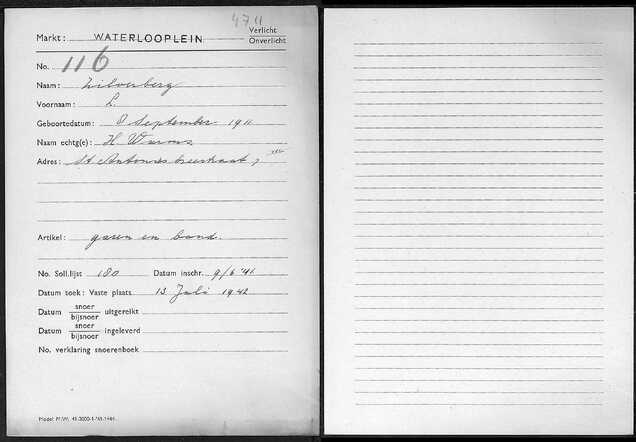 4711
Markt: WATERLOOPLEIN Verlicht
Onverlicht
No. 116
Naam: Zilverberg
Voornaam: L.
Geboortedatum: 8 September 1911
Naam echtg(e): H Worms
Adres: St Antonies breestraat 7
Artikel: garen en band.
No. Soll.lijst 180 Datum inschr. 9/6 '41
Datum toek: Vaste plaats 13 Juli 1942
Datum snoer
bijsnoer uitgereikt
Datum snoer
bijsnoer ingeleverd
No. verklaring snoerenboek
Model M.W.